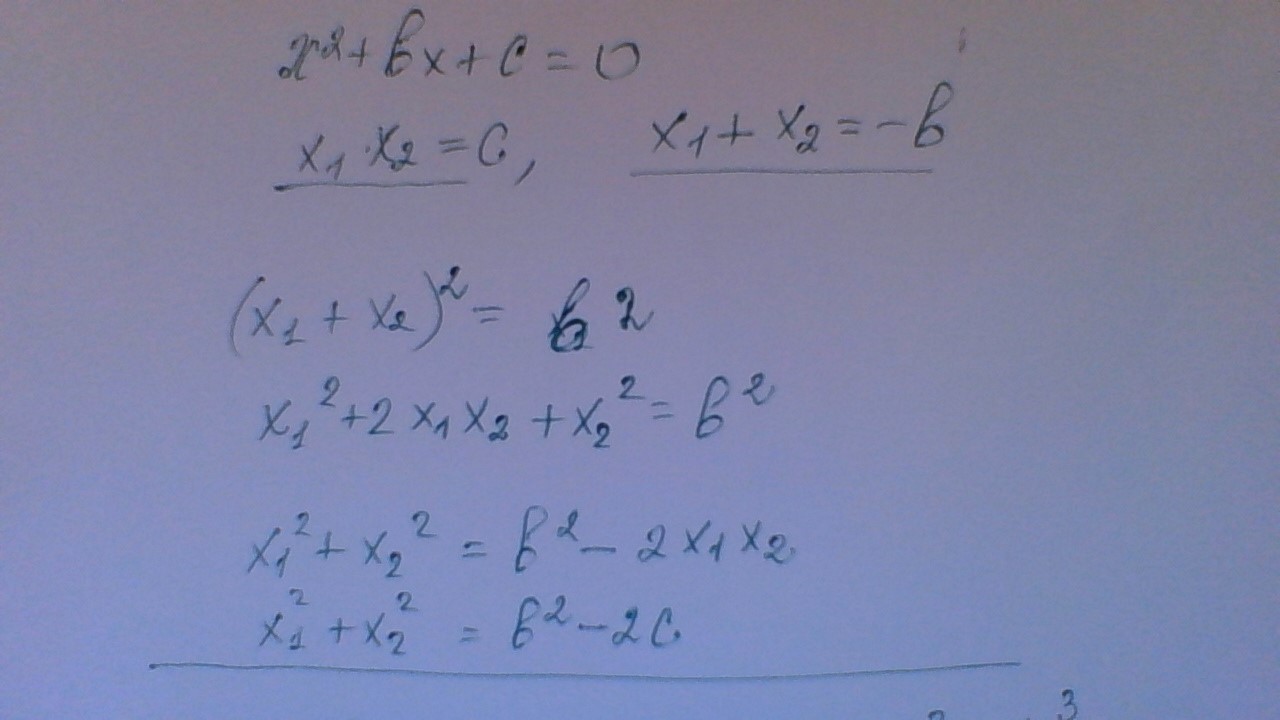 x² + bx + c = 0
x₁ · x₂ = c, x₁ + x₂ = -b
(x₁ + x₂)² = b²
x₁² + 2 x₁ x₂ + x₂² = b²
x₁² + x₂² = b² - 2 x₁ x₂
x₁² + x₂² = b² - 2c